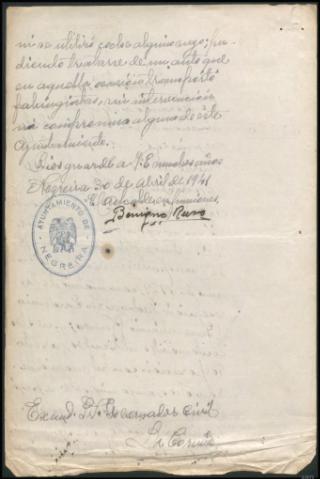 ni se utilizó coche alguno suyo; pu-
diendo tratarse de un auto que
en aquella ocasión transportó
falangistas, sin intervención
ni compromiso alguno de este
Ayuntamiento.
Dios guarde a V.E. muchos años
Negreira 30 de Abril de 1941
El Alcalde en funciones,
Benigno
AYUNTAMIENTO DE
NEGREIRA
Excmo. Sr. Gobernador Civil
La Coruña